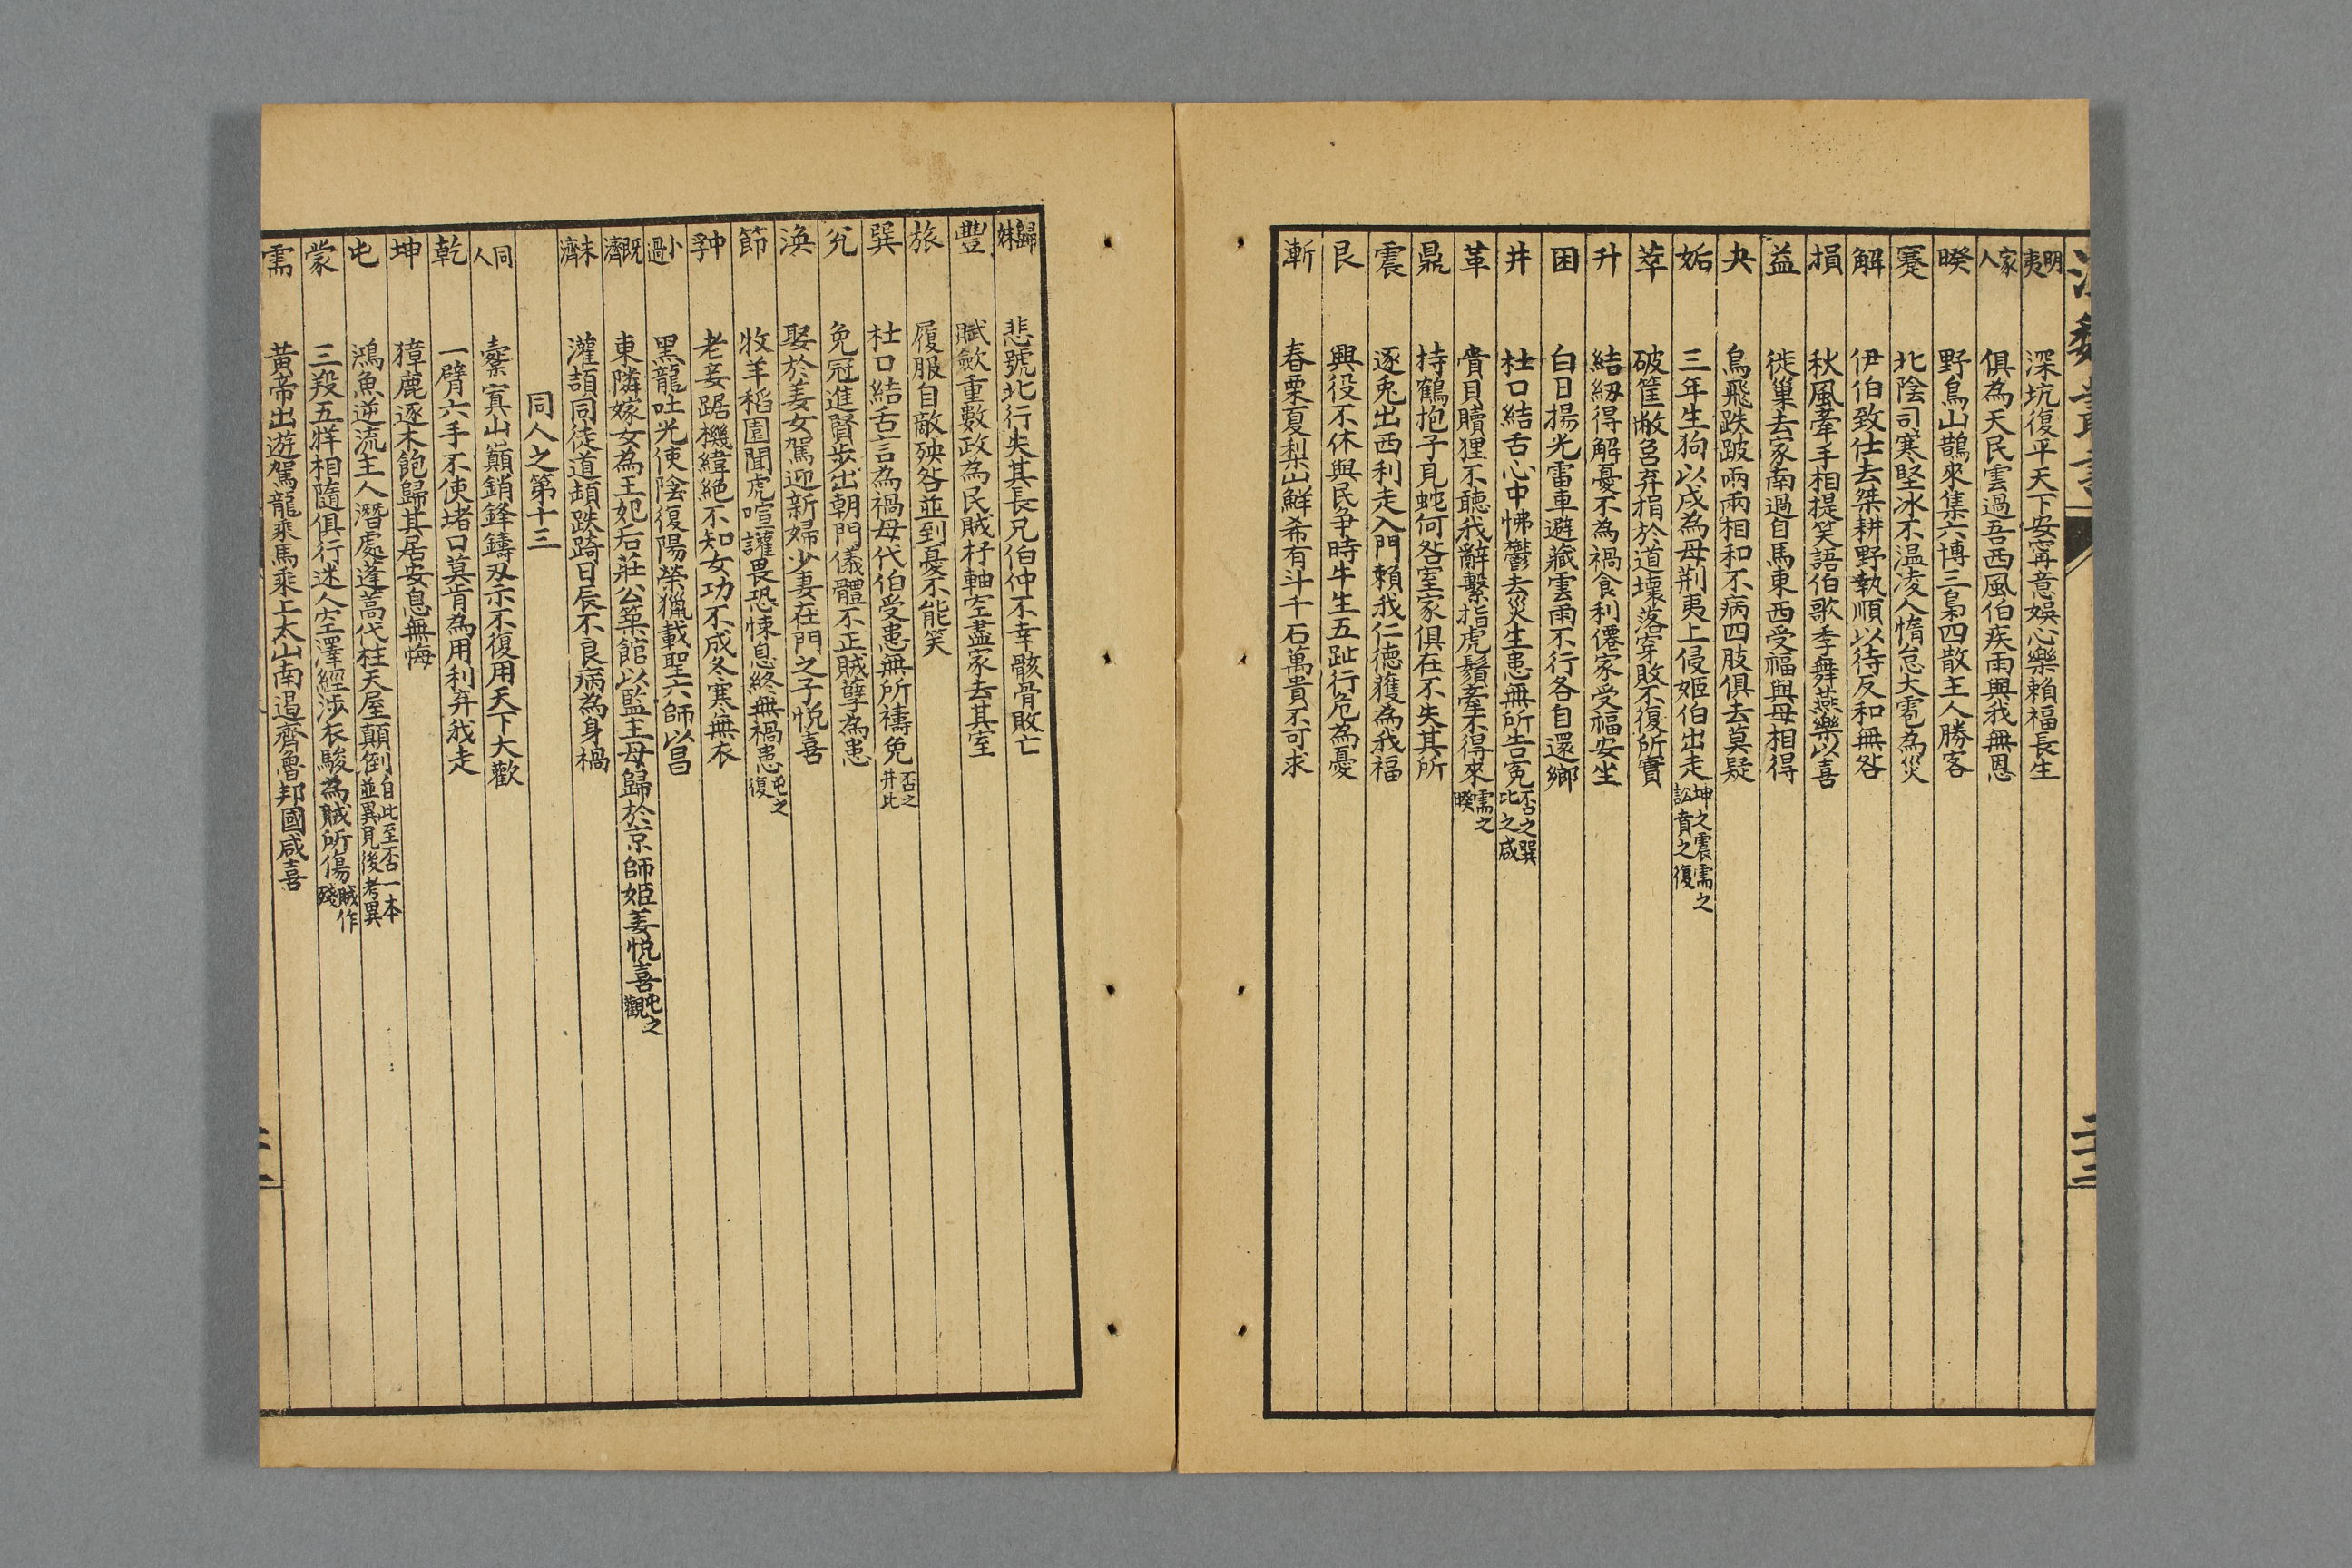 明夷 深坑復平天下安寧意娛心樂賴福長生
家人 俱為天民雲過吾西風伯疾雨與我無恩
睽 野鳥山鵲來集六博三梟四散主人勝客
蹇 北陰司寒堅冰不温凌人惰怠大雹為災
解 伊伯致仕去桀耕野執順以待反和無咎
損 秋風牽手相提笑語伯歌季舞燕樂以喜
益 徙巢去家南過自馬東西受福與母相得
夬 鳥飛跌跛兩兩相和不病四肢俱去莫疑
姤 三年生狗以戌為母荆夷上侵姬伯出走 坤之震需之訟賁之復
萃 破筐敝筥弃捐於道壞落穿敗不復所實
升 結紉得解憂不為禍食利僊家受福安坐
困 白日揚光雷車避藏雲雨不行各自還鄉
井 杜口結舌心中怫鬱去災生患無所告冤 否之巽比之咸
革 賫貝贖狸不聽我辭繫指虎鬚牽不得來 需之睽
鼎 持鶴抱子見蛇何咎室家俱在不失其所
震 逐兎出西利走入門賴我仁德獲為我福
艮 興役不休與民爭時牛生五趾行危為憂
漸 春栗夏梨山鮮希有斗千石萬貴不可求
二十二
歸妹 悲號北行失其長兄伯仲不幸骸骨敗亡
豐 賦歛重數政為民賊杼軸空盡家去其室
旅 履服自敵殃咎並到憂不能笑
巽 杜口結舌言為禍母代伯受患無所禱免 否之井比
兊 免冠進賢步出朝門儀體不正賊孽為患
渙 娶於姜女駕迎新婦少妻在門之子悅喜
節 牧羊稻園聞虎喧讙畏恐悚息終無禍患 屯之復
中孚 老妾踞機緯絕不知女功不成冬寒無衣
小過 黑龍吐光使陰復陽榮獵載聖六師以昌
既濟 東隣嫁女為王妃后莊公築館以監主母歸於京師姬姜悅喜 屯之觀
未濟 灌頡同徒道頡跌踦日辰不良病為身禍
同人之第十三
同人 橐㝠山巔銷鋒鑄刄示不復用天下大歡
乾 一臂六手不使堵口莫肯為用利弃我走
坤 獐鹿逐木飽歸其居安息無悔
屯 鴻魚逆流主人潛處蓬蒿代柱天屋顛倒 自此至否一本並異見後考異
蒙 三羖五牂相隨俱行迷人空澤經涉衣駿為賊所傷 賊作殘
需 黃帝出遊駕龍乘馬乘上太山南過齊魯邦國咸喜